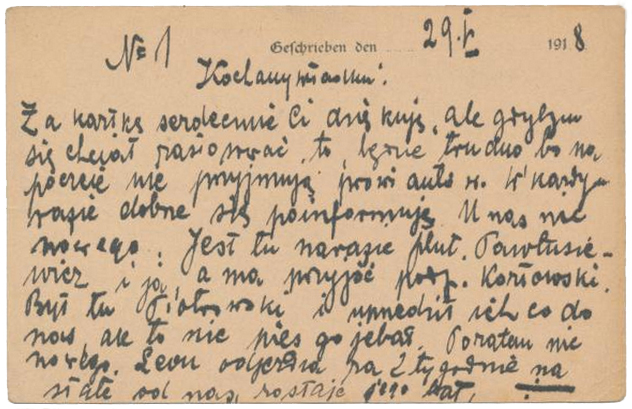 № 1 Geschrieben den 29.V 1918
Kochany wiasku!
Za kartkę serdecznie Ci dziękuję, ale gdybym
się chciał to będzie trudno bo na
poczcie nie przyjmują w. W każdym
razie dobrze się poinformuję. U nas nic
nowego. Jest tu narazie plut. Pawłusie-
wicz i ja, a ma przyjść podp. Kozłowski.
Był tu Piotrowski i ich co do
nas, ale to nie pies go jebał. Poratem nic
nowego. Leon odjeżdża za 2 tygodnie na
stałe od nas, zostaje jego